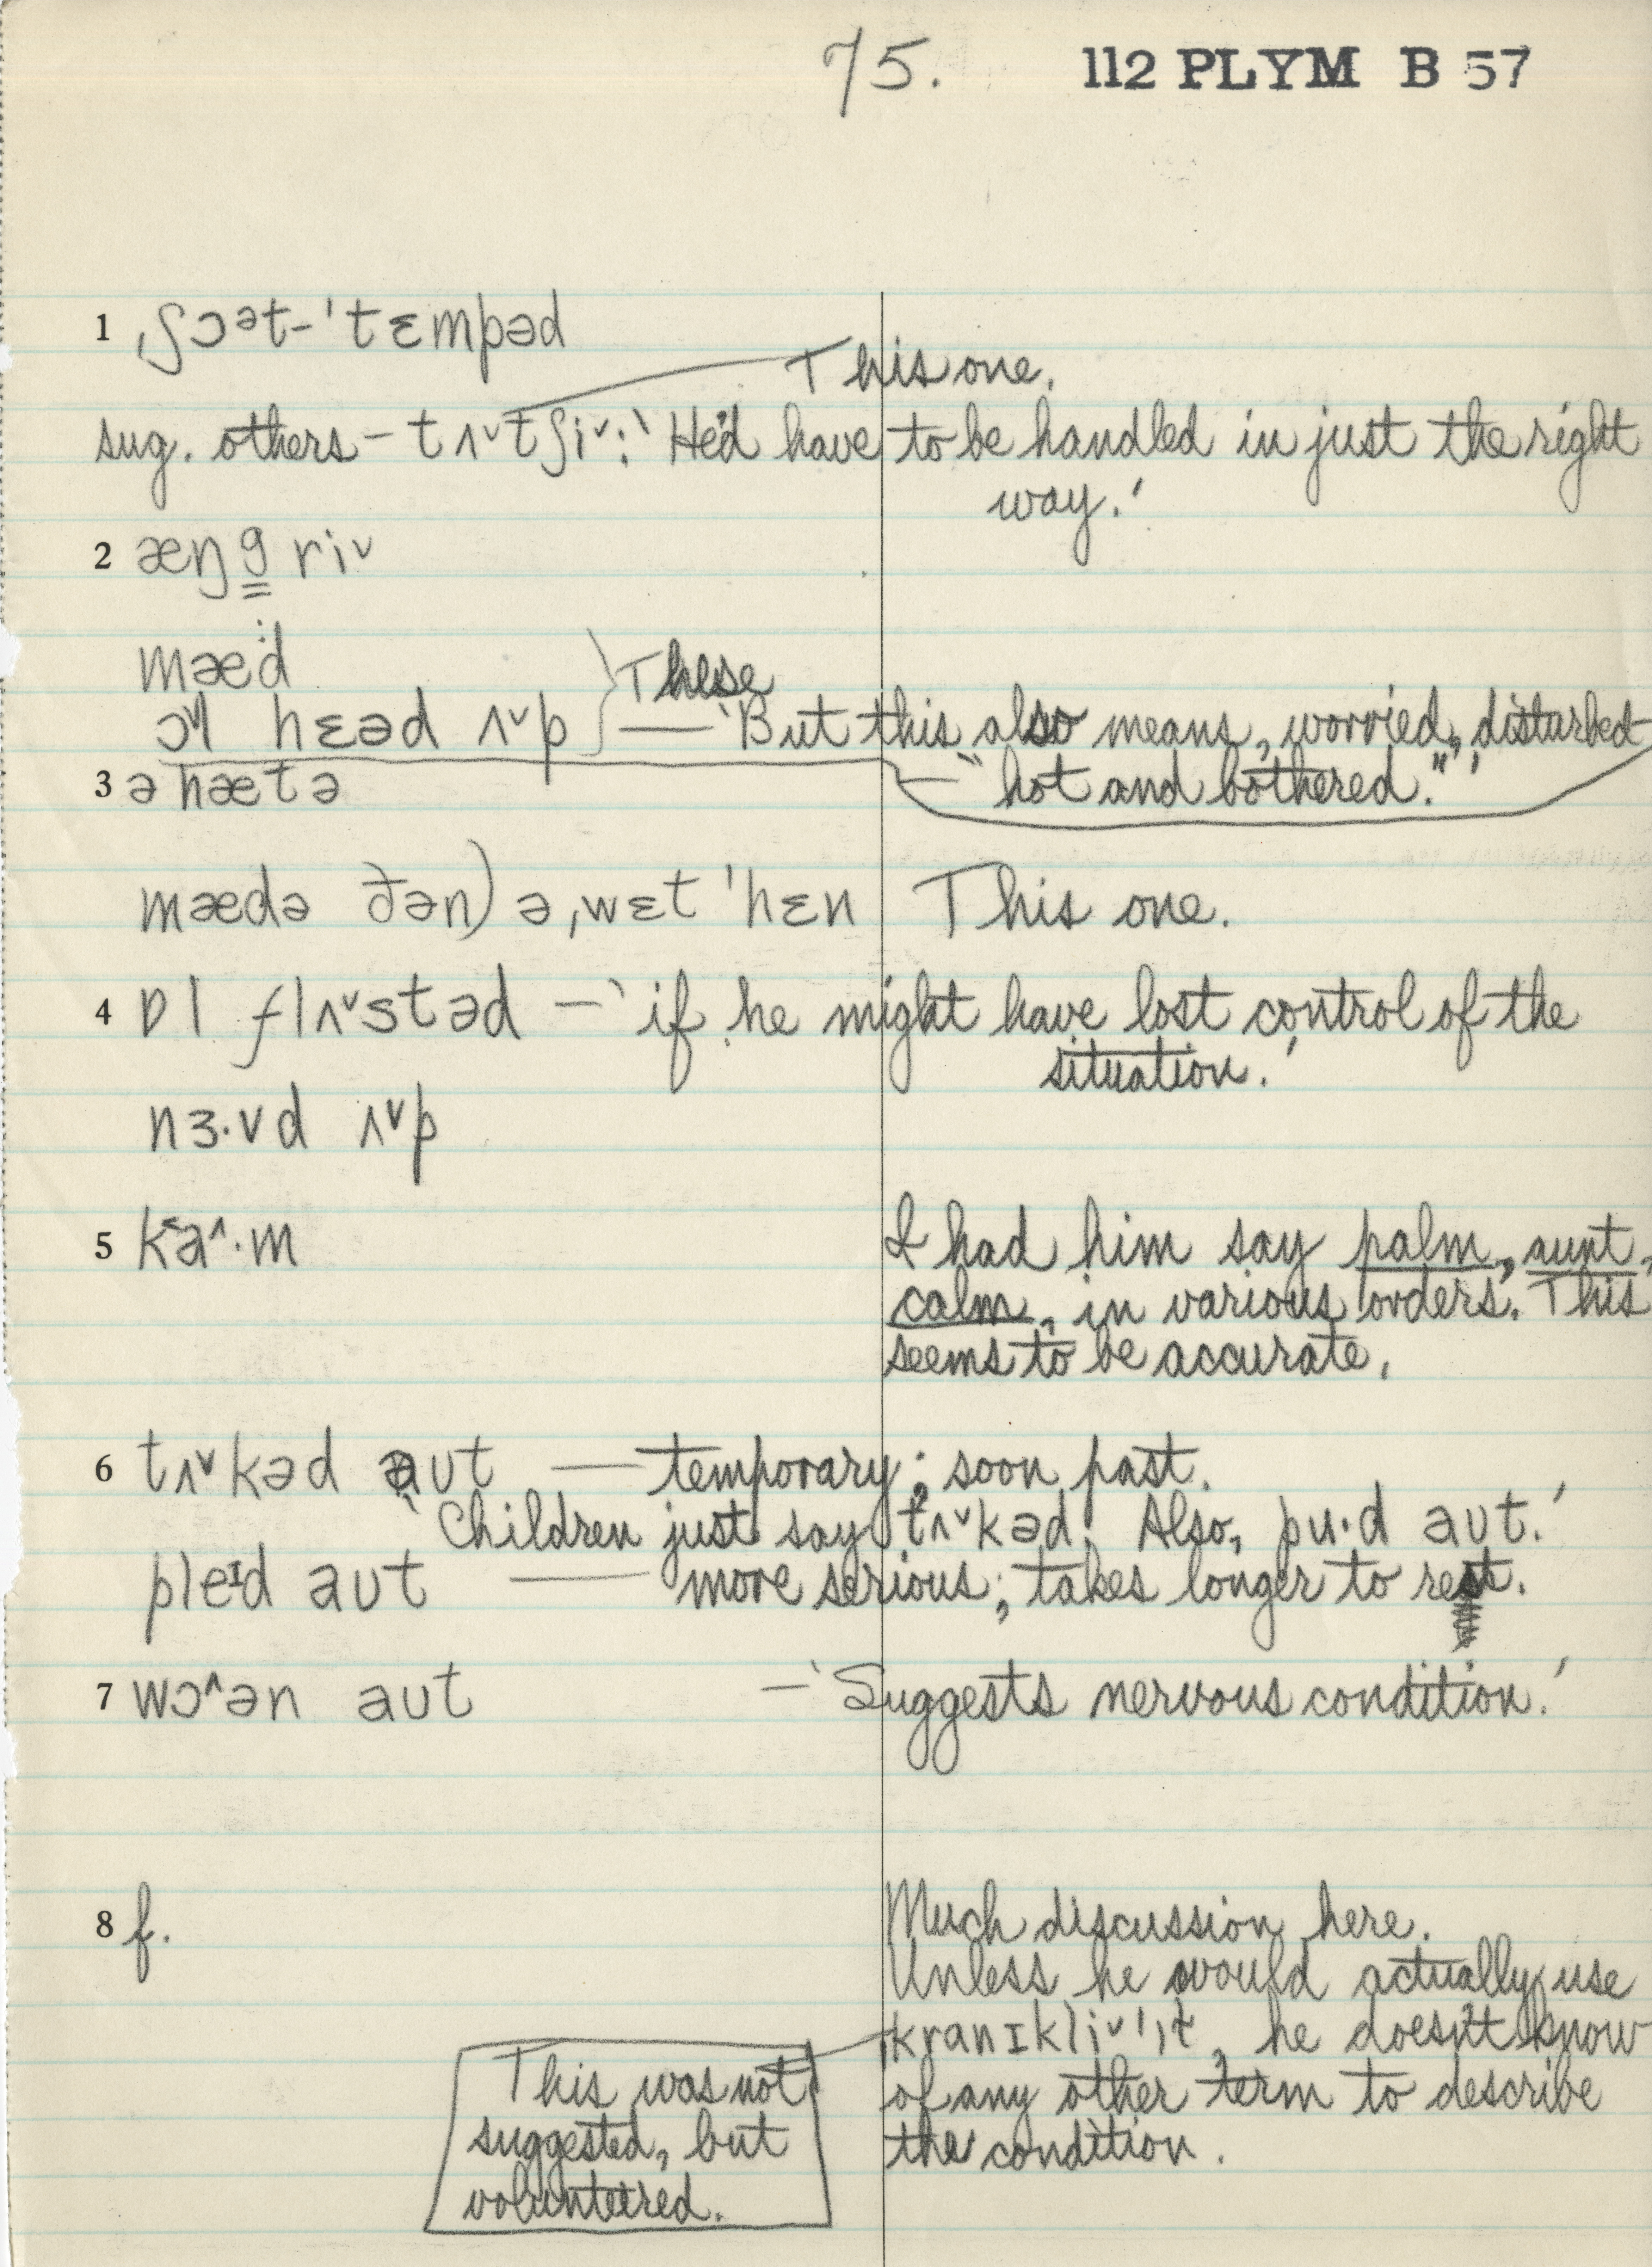 75. 112 PLYM B 57
1 ˌʃɔᵊt-ˈtɛmpəd
This one.
sug. others – tʌ˅tʃi˅: ‘He'd have to be handled in just the right
way.’
2 æŋg̳ri˅
mæ·d
ɔ˅l hɛəd ʌ˅p } These — ‘But this also means, worried, disturbed
3 ə hætə — “hot and bothered.”’
mædə ðən) ə ˌwɛt ˈhɛn This one.
4 ɒl flʌ˅stəd – ‘if he might have lost control of the
situation.’
nɜ·vd ʌ˅p
5 ka˂˄·m I had him say palm, aunt,
calm, in various orders. This
seems to be accurate.
6 tʌ˅kəd aut — temporary; soon past.
‘Children just say tʌ˅kəd. Also, pu·d aut.’
pleɪd aut — more serious; takes longer to rest.
7 wɔ˄ən aut – ‘Suggests nervous condition.’
8 f. Much discussion here.
Unless he would actually use
kranɪkli˅ ˈɪt, he doesn't know
of any other term to describe
the condition.
This was not
suggested, but
volunteered.